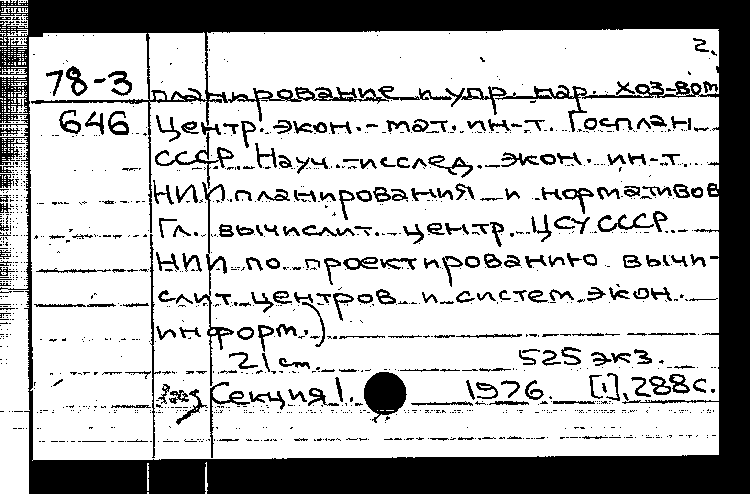 2.
78-3 планирование и упр. нар. хоз-вом
646 Центр. экон.-мат. ин-т. Госплан
СССР. Науч.-исслед. экон. ин-т
НИИ планирования и нормативов
Гл. вычислит. центр. ЦСУ СССР
НИИ по проектированию вычи-
слит. центров и систем экон.
информ.)
21 см. 525 экз.
Секция 1. 1976. [1], 288 с.